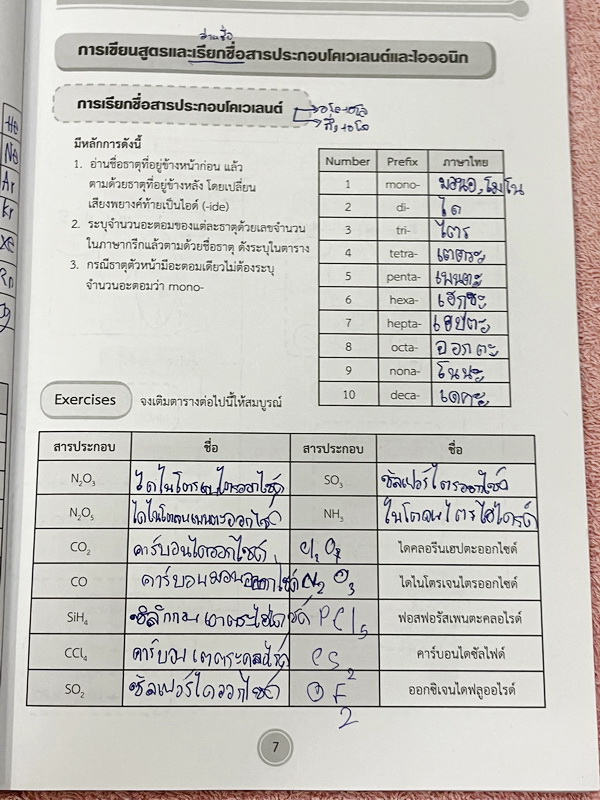 อ่านชื่อ
การเขียนสูตรและเรียกชื่อสารประกอบโคเวเลนต์และไอออนิก
การเรียกชื่อสารประกอบโคเวเลนต์
มีหลักการดังนี้
1. อ่านชื่อธาตุที่อยู่ข้างหน้าก่อน แล้ว
ตามด้วยธาตุที่อยู่ข้างหลัง โดยเปลี่ยน
เสียงพยางค์ท้ายเป็นไอด์ (-ide)
2. ระบุจำนวนอะตอมของแต่ละธาตุด้วยเลขจำนวน
ในภาษากรีกแล้วตามด้วยชื่อธาตุ ดังระบุในตาราง
3. กรณีธาตุตัวหน้ามีอะตอมเดียวไม่ต้องระบุ
จำนวนอะตอมว่า mono-
Number Prefix ภาษาไทย
1 mono- มอนอ, โมโน
2 di- ได
3 tri- ไตร
4 tetra- เตตระ
5 penta- เพนตะ
6 hexa- เฮกซะ
7 hepta- เฮปตะ
8 octa- ออกตะ
9 nona- โนนะ
10 deca- เดคะ
Exercises จงเติมตารางต่อไปนี้ให้สมบูรณ์
สารประกอบ ชื่อ สารประกอบ ชื่อ
N₂O₃ ไดไนโตรเจนไตรออกไซด์ SO₃ ซัลเฟอร์ไตรออกไซด์
N₂O₅ ไดไนโตรเจนเพนตะออกไซด์ NH₃ ไนโตเจนไตรไฮไดรด์
CO₂ คาร์บอนไดออกไซด์ Cl₂O₇ ไดคลอรีนเฮปตะออกไซด์
CO คาร์บอนมอนอออกไซด์ N₂O₃ ไดไนโตรเจนไตรออกไซด์
SiH₄ ซิลิกอนเตตระไฮไดรด์ PCl₅ ฟอสฟอรัสเพนตะคลอไรด์
CCl₄ คาร์บอนเตตระคลอไรด์ CS₂ คาร์บอนไดซัลไฟด์
SO₂ ซัลเฟอร์ไดออกไซด์ OF₂ ออกซิเจนไดฟลูออไรด์
7